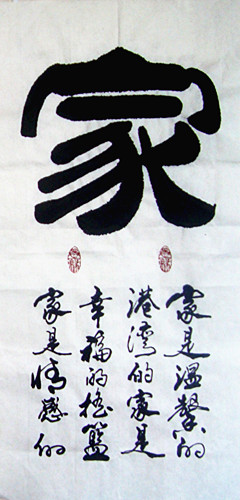 家
家是温馨的
港灣的家是
幸福的搖籃
家是情感的